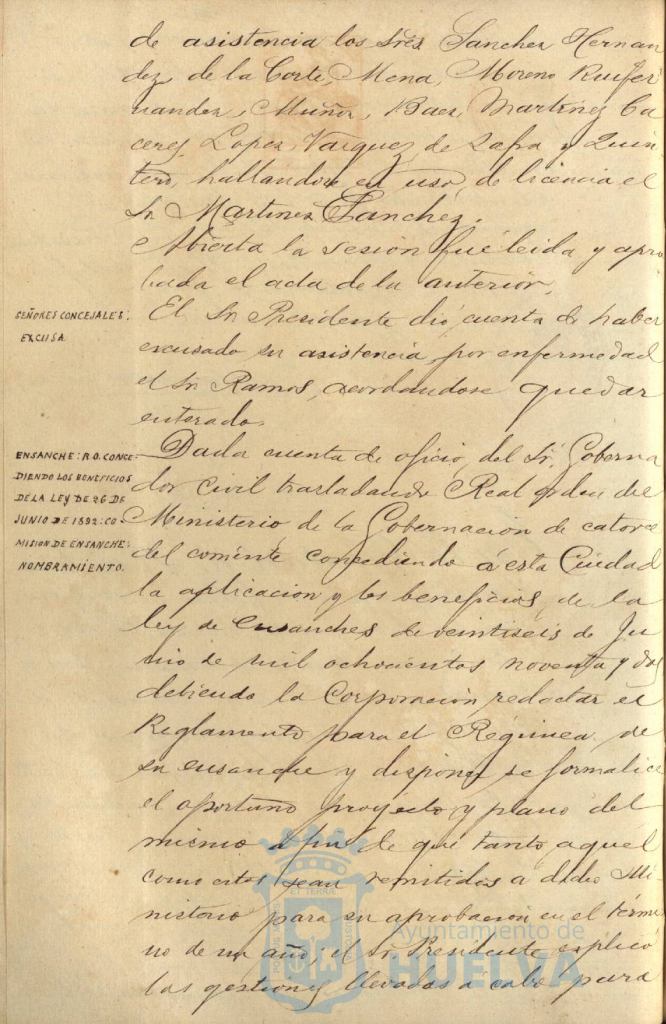 de asistencia los Sres Sanchez Hernan
dez, de la Corte, Mena, Moreno Ruifer
nandez, Muñoz, Baez, Martinez Ca
ceres, Lopez, Vazquez, de Zafra y Quin
tero, hallandose en uso de licencia el
Sr Martinez Sanchez.
Abierta la sesión fué leida y apro
bada el acta de la anterior.
SEÑORES CONCEJALES:
EXCUSA
El Sr Presidente dió cuenta de haber
excusado su asistencia por enfermedad
el Sr Ramos, acordandose quedar
enterado.
ENSANCHE: R.O. CONCE-
DIENDO LOS BENEFICIOS
DE LA LEY DE 26 DE
JUNIO DE 1892: CO-
MISION DE ENSANCHE:
NOMBRAMIENTO.
Dada cuenta de oficio del Sr. Goberna
dor Civil trasladando Real orden del
Ministerio de la Gobernacion de catorce
del corriente concediendo á esta Ciudad
la aplicacion y los beneficios de la
ley de Ensanches de veintiseis de Ju
nio de mil ochocientos noventa y dos
debiendo la Corporación redactar el
Reglamento para el Régimen de
su ensanche y disponer se formalice
el oportuno proyecto y plano del
mismo a fin de que tanto aquel
como estos sean remitidos a dicho Mi
nisterio para su aprobacion en el térmi
no de un año; el Sr Presidente explicó
las gestiones llevadas á cabo para
Ayuntamiento de
HUELVA